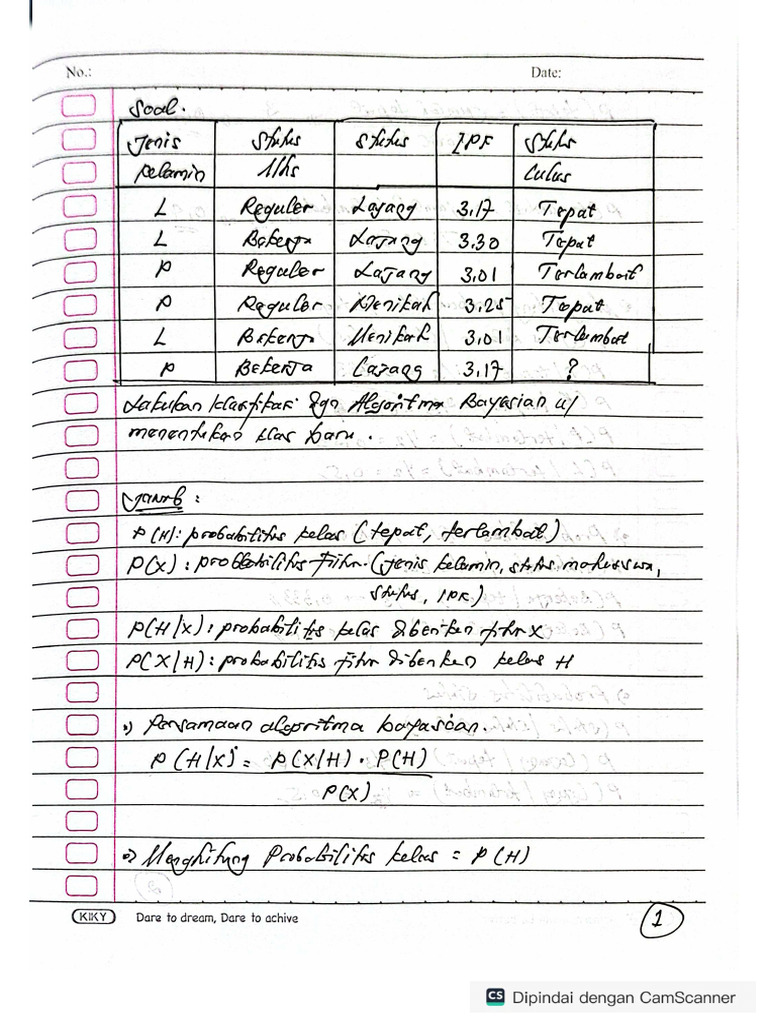 No.: Date:
Soal.
Jenis Status Status IPK Status
Kelamin Mhs Lulus
L Reguler Lajang 3.17 Tepat
L Bekerja Lajang 3.30 Tepat
P Reguler Lajang 3.01 Terlambat
P Reguler Menikah 3.25 Tepat
L Bekerja Menikah 3.01 Terlambat
P Bekerja Lajang 3.17 ?
Lakukan klasifikasi dgn Algoritma Bayasian u/
menentukan klas baru.
Jawab :
P(H): probabilitas kelas (tepat, terlambat)
P(X) : probbabilitas Fitur. (jenis kelamin, status mahasiswa,
status, IPK)
P(H/X) : probabilitas kelas diberikan fitur X
P(X/H) : probabilitas fitur diberikan kelas H
Persamaan algoritma bayasian.
P(H/X) = P(X/H) . P(H)
P(X)
Menghitung Probabilitas kelas = P(H)
KIKY Dare to dream, Dare to achive
1
CS Dipindai dengan CamScanner